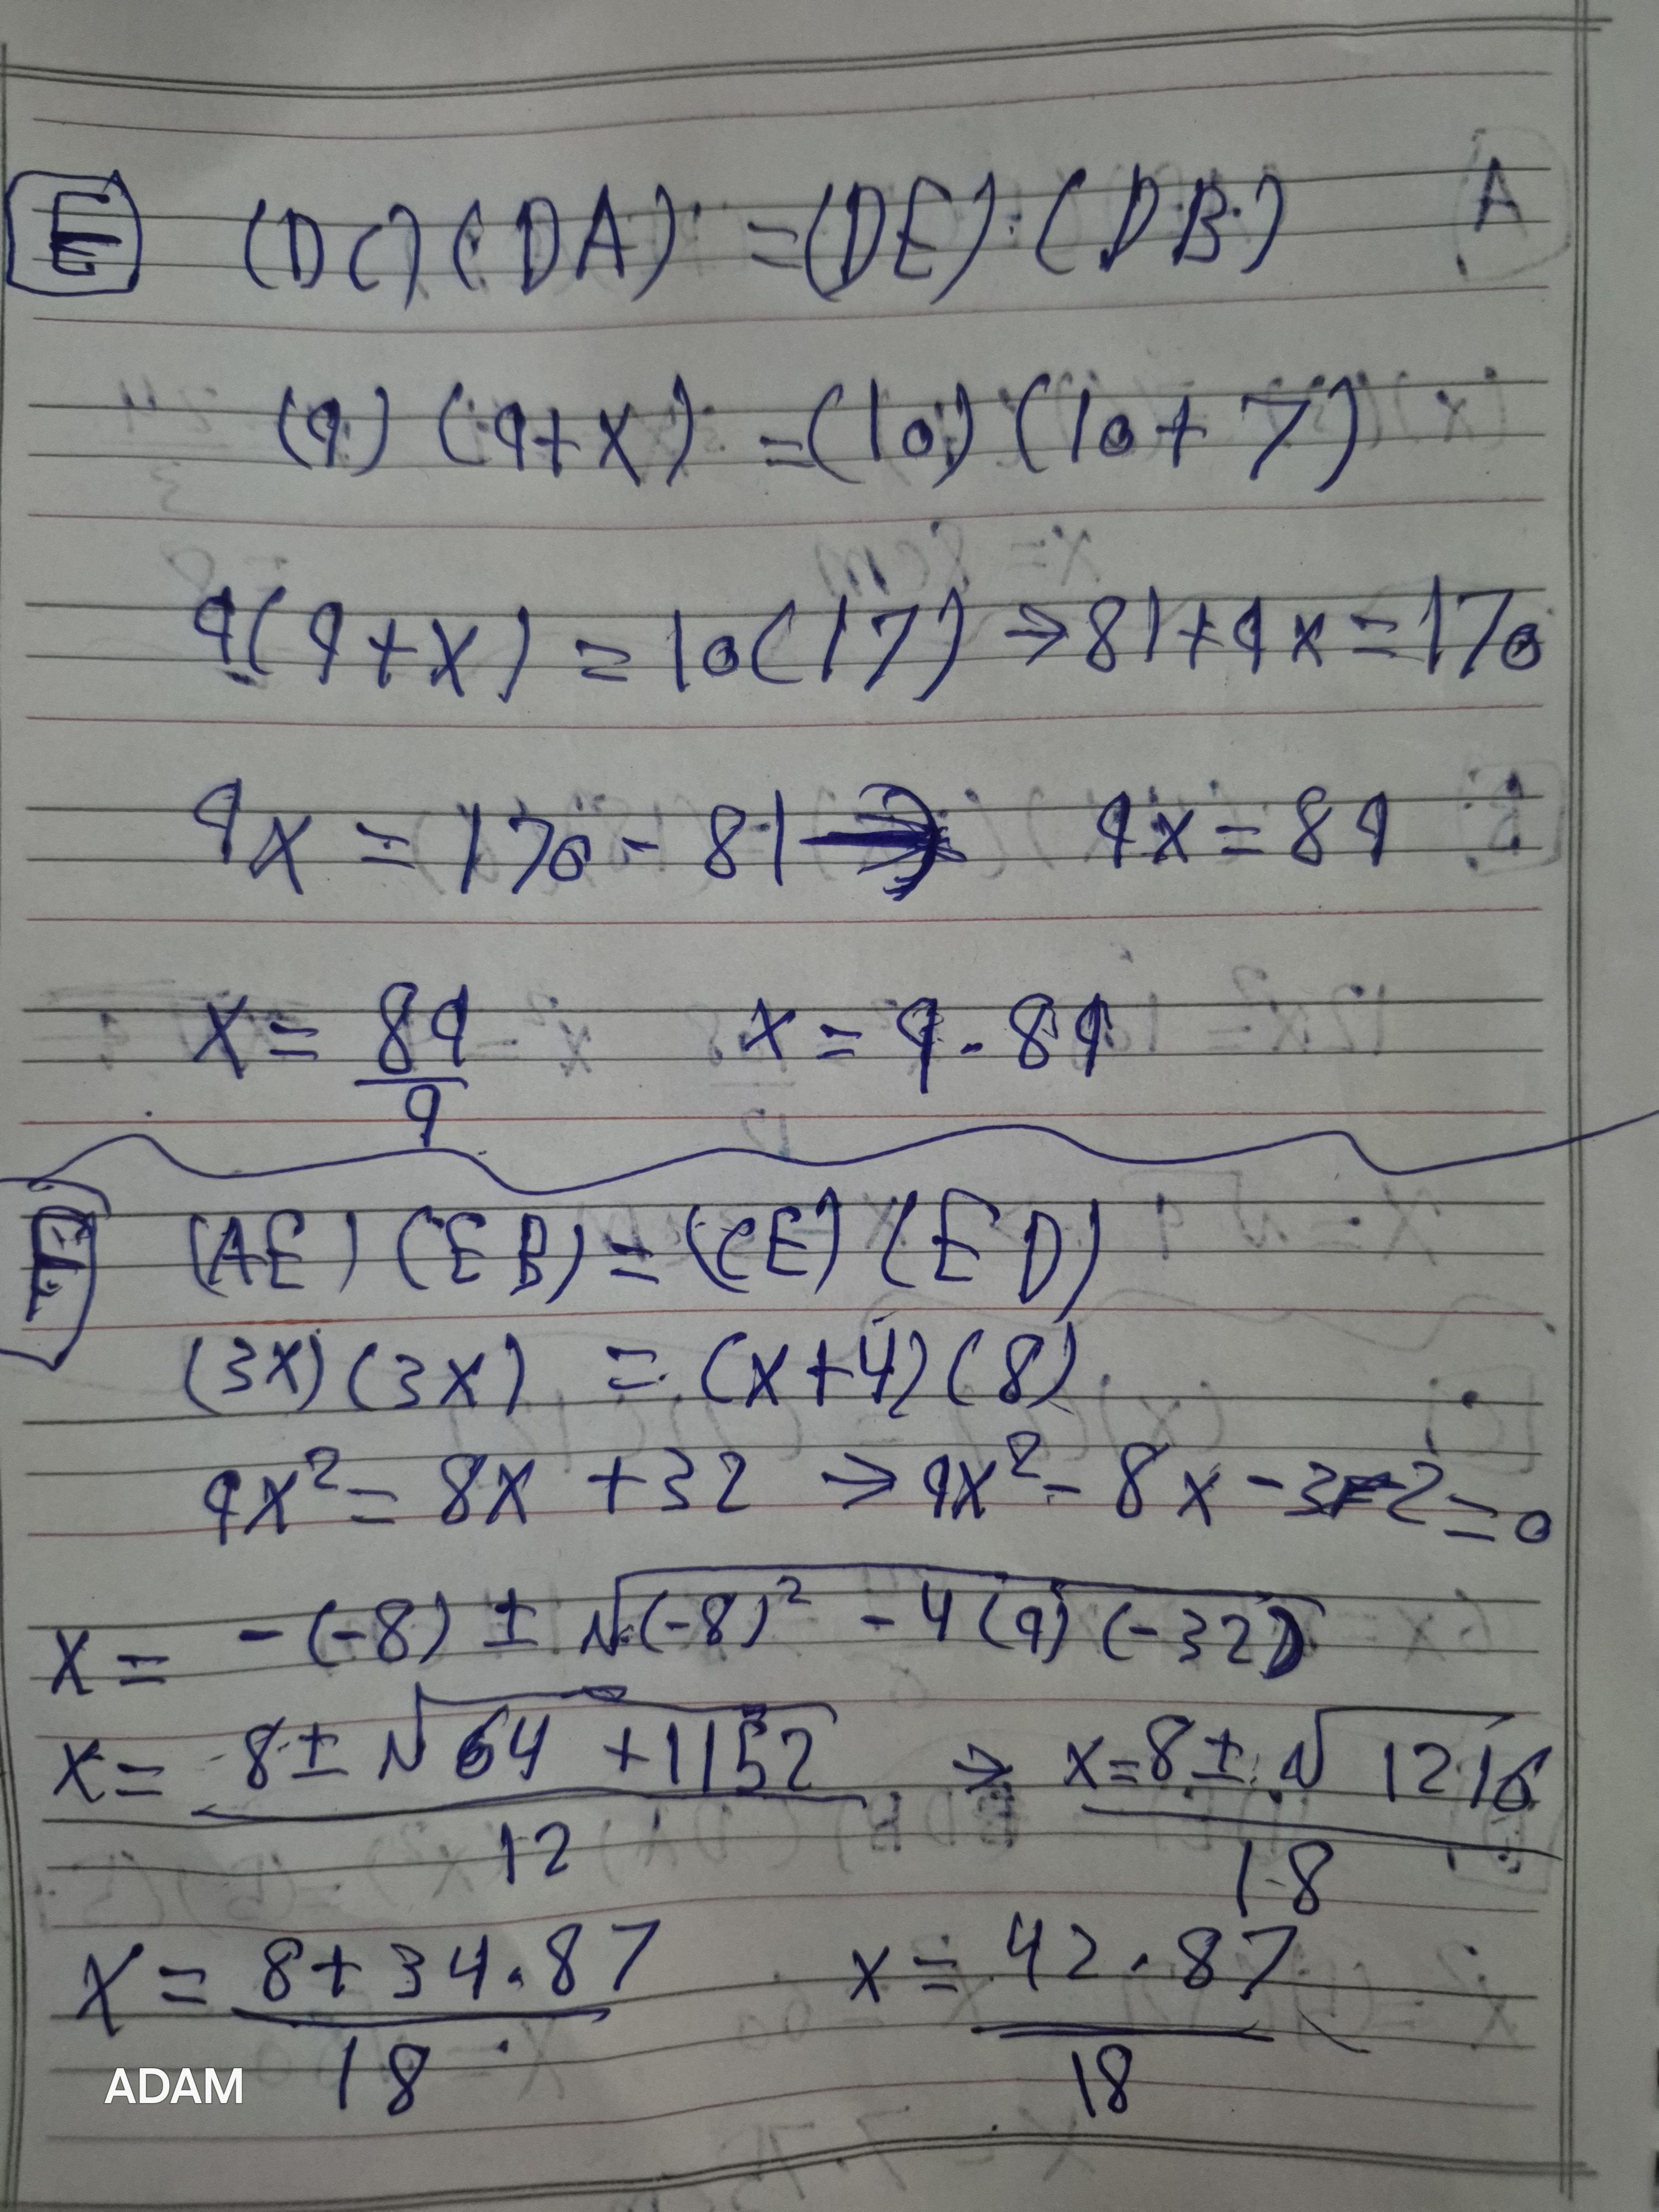 E (DC) (DA) = (DE) · (DB) A
(9) (9+x) = (10) (10+7)
9(9+x) = 10(17) → 81+9x=170
9x = 170 - 81 → 9x = 89
x = 89/9 x = 9.89
F (AE) (EB) = (CE) (ED)
(3x) (3x) = (x+4) (8)
9x² = 8x + 32 → 9x² - 8x - 32 = 0
x = -(-8) ± √(-8)² - 4(9) (-32)
x = 8 ± √64 + 1152 / 12 → x = 8 ± √1216 / 18
x = 8 + 34.87 / 18 x = 42.87 / 18
ADAM